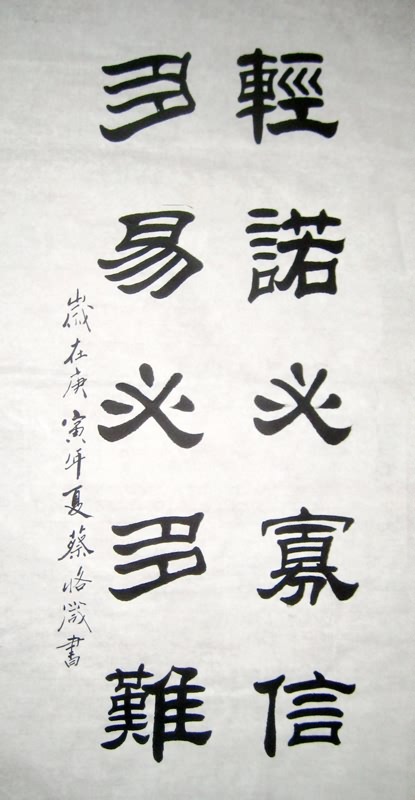 輕諾必寡信
多易必多難
歲在庚寅年夏蔡恪箴書